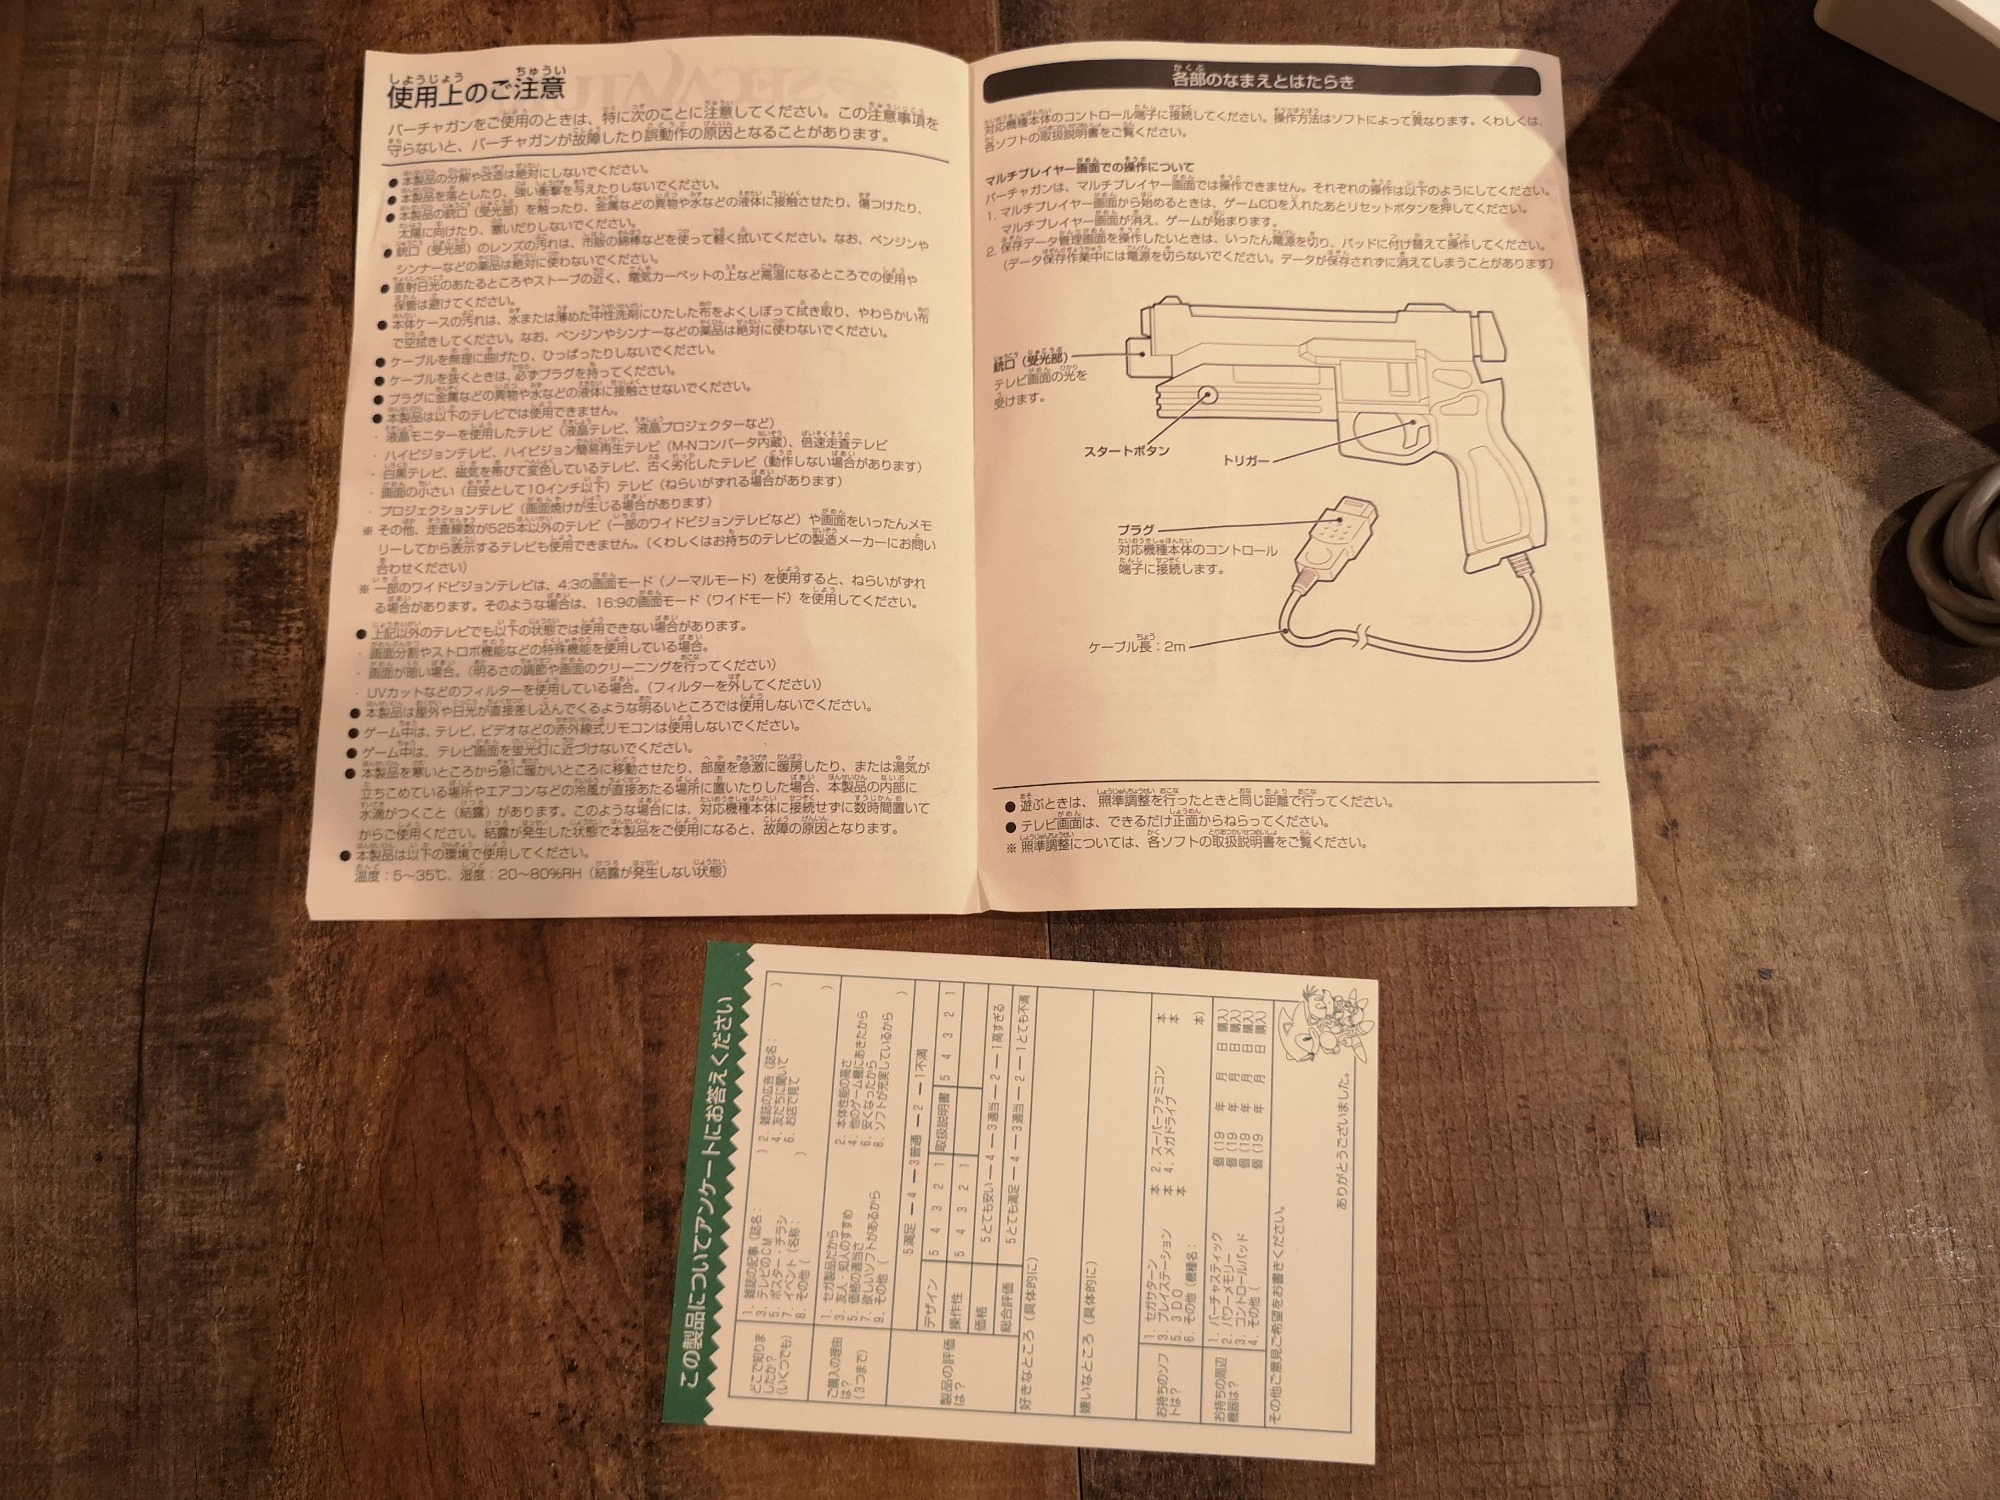 使用上のご注意
バーチャガンをご使用のときは、特に次のことに注意してください。この注意事項を
守らないと、バーチャガンが故障したり誤動作の原因となることがあります。
● 本製品の分解や改造は絶対にしないでください。
● 本製品を落としたり、強い衝撃を与えたりしないでください。
● 本製品の銃口（受光部）を触ったり、金属などの異物や水などの液体に接触させたり、傷つけたり、
太陽に向けたり、塞いだりしないでください。
● 銃口（受光部）のレンズの汚れは、市販の綿棒などを使って軽く拭いてください。なお、ベンジンや
シンナーなどの薬品は絶対に使わないでください。
● 直射日光のあたるところやストーブの近く、電気カーペットの上など高温になるところでの使用や
保管は避けてください。
● 本体ケースの汚れは、水または薄めた中性洗剤にひたした布をよくしぼって拭き取り、やわらかい布
で空拭きしてください。なお、ベンジンやシンナーなどの薬品は絶対に使わないでください。
● ケーブルを無理に曲げたり、ひっぱったりしないでください。
● ケーブルを抜くときは、必ずプラグを持ってください。
● プラグに金属などの異物や水などの液体に接触させないでください。
● 本製品は以下のテレビでは使用できません。
・液晶モニターを使用したテレビ（液晶テレビ、液晶プロジェクターなど）
・ハイビジョンテレビ、ハイビジョン簡易再生テレビ（M-Nコンバータ内蔵）、倍速走査テレビ
・白黒テレビ、磁気を帯びて変色しているテレビ、古く劣化したテレビ（動作しない場合があります）
・画面の小さい（目安として10インチ以下）テレビ（ねらいがずれる場合があります）
・プロジェクションテレビ（画面焼けが生じる場合があります）
※ その他、走査線数が525本以外のテレビ（一部のワイドビジョンテレビなど）や画面をいったんメモ
リーしてから表示するテレビも使用できません。（くわしくはお持ちのテレビの製造メーカーにお問い
合わせください）
※ 一部のワイドビジョンテレビは、4:3の画面モード（ノーマルモード）を使用すると、ねらいがずれ
る場合があります。そのような場合は、16:9の画面モード（ワイドモード）を使用してください。
● 上記以外のテレビでも以下の状態では使用できない場合があります。
・画面分割やストロボ機能などの特殊機能を使用している場合。
・画面が暗い場合。（明るさの調節や画面のクリーニングを行ってください）
・UVカットなどのフィルターを使用している場合。（フィルターを外してください）
● 本製品は屋外や日光が直接差し込んでくるような明るいところでは使用しないでください。
● ゲーム中は、テレビ、ビデオなどの赤外線式リモコンは使用しないでください。
● ゲーム中は、テレビ画面を蛍光灯に近づけないでください。
● 本製品を寒いところから急に暖かいところに移動させたり、部屋を急激に暖房したり、または湯気が
立ちこめている場所やエアコンなどの冷風が直接あたる場所に置いたりした場合、本製品の内部に
水滴がつくこと（結露）があります。このような場合には、対応機種本体に接続せずに数時間置いて
からご使用ください。結露が発生した状態で本製品をご使用になると、故障の原因となります。
● 本製品は以下の環境で使用してください。
温度：5～35℃、湿度：20～80%RH（結露が発生しない状態）
各部のなまえとはたらき
対応機種本体のコントロール端子に接続してください。操作方法はソフトによって異なります。くわしくは、
各ソフトの取扱説明書をご覧ください。
マルチプレイヤー画面での操作について
バーチャガンは、マルチプレイヤー画面では操作できません。それぞれの操作は以下のようにしてください。
1. マルチプレイヤー画面から始めるときは、ゲームCDを入れたあとリセットボタンを押してください。
マルチプレイヤー画面が消え、ゲームが始まります。
2. 保存データ管理画面を操作したいときは、いったん電源を切り、パッドに付け替えて操作してください。
（データ保存作業中には電源を切らないでください。データが保存されずに消えてしまうことがあります）
銃口（受光部）
テレビ画面の光を
受けます。
スタートボタン
トリガー
プラグ
対応機種本体のコントロール
端子に接続します。
ケーブル長：2m
● 遊ぶときは、照準調整を行ったときと同じ距離で行ってください。
● テレビ画面は、できるだけ正面からねらってください。
※ 照準調整については、各ソフトの取扱説明書をご覧ください。
この製品についてアンケートにお答えください
どこで知りま
したか？
（いくつでも）
1. 雑誌の記事（誌名： ） 2. 雑誌の広告（誌名： ）
3. テレビのCM 4. 友だちに聞いて
5. ポスター・チラシ 6. お店で見て
7. イベント（名称： ）
8. その他（ ）
ご購入の理由
は？
（3つまで）
1. セガ製品だから 2. 本体性能の高さ
3. 友人・知人のすすめ 4. 他のゲーム機にあきたから
5. 価格の適当さ 6. 安くなったから
7. 欲しいソフトがあるから 8. ソフトが充実しているから
9. その他（ ）
製品の評価
は？
5満足 ― 4 ― 3普通 ― 2 ― 1不満
デザイン 5 4 3 2 1 取扱説明書 5 4 3 2 1
操作性 5 4 3 2 1
価格 5とても安い ― 4 ― 3適当 ― 2 ― 1高すぎる
総合評価 5とても満足 ― 4 ― 3適当 ― 2 ― 1とても不満
好きなところ（具体的に）
嫌いなところ（具体的に）
お持ちのソフ
トは？
1. セガサターン 本 2. スーパーファミコン 本
3. プレイステーション 本 4. メガドライブ 本
5. 3DO 本
6. その他（機種名： 本）
お持ちの周辺
機器は？
1. バーチャスティック 個（19 年 月 日 購入）
2. パワーメモリー 個（19 年 月 日 購入）
3. コントロールパッド 個（19 年 月 日 購入）
4. その他（ 個（19 年 月 日 購入）
その他ご意見ご希望をお書きください。
ありがとうございました。